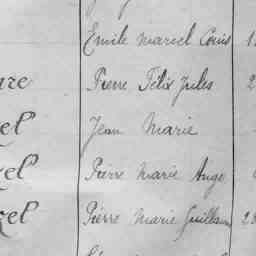 Emile Marcel Louis 1
re Pierre Félix Jules 2
el Jean Marie
el Pierre Marie Ange
el Pierre Marie Guillaum 28